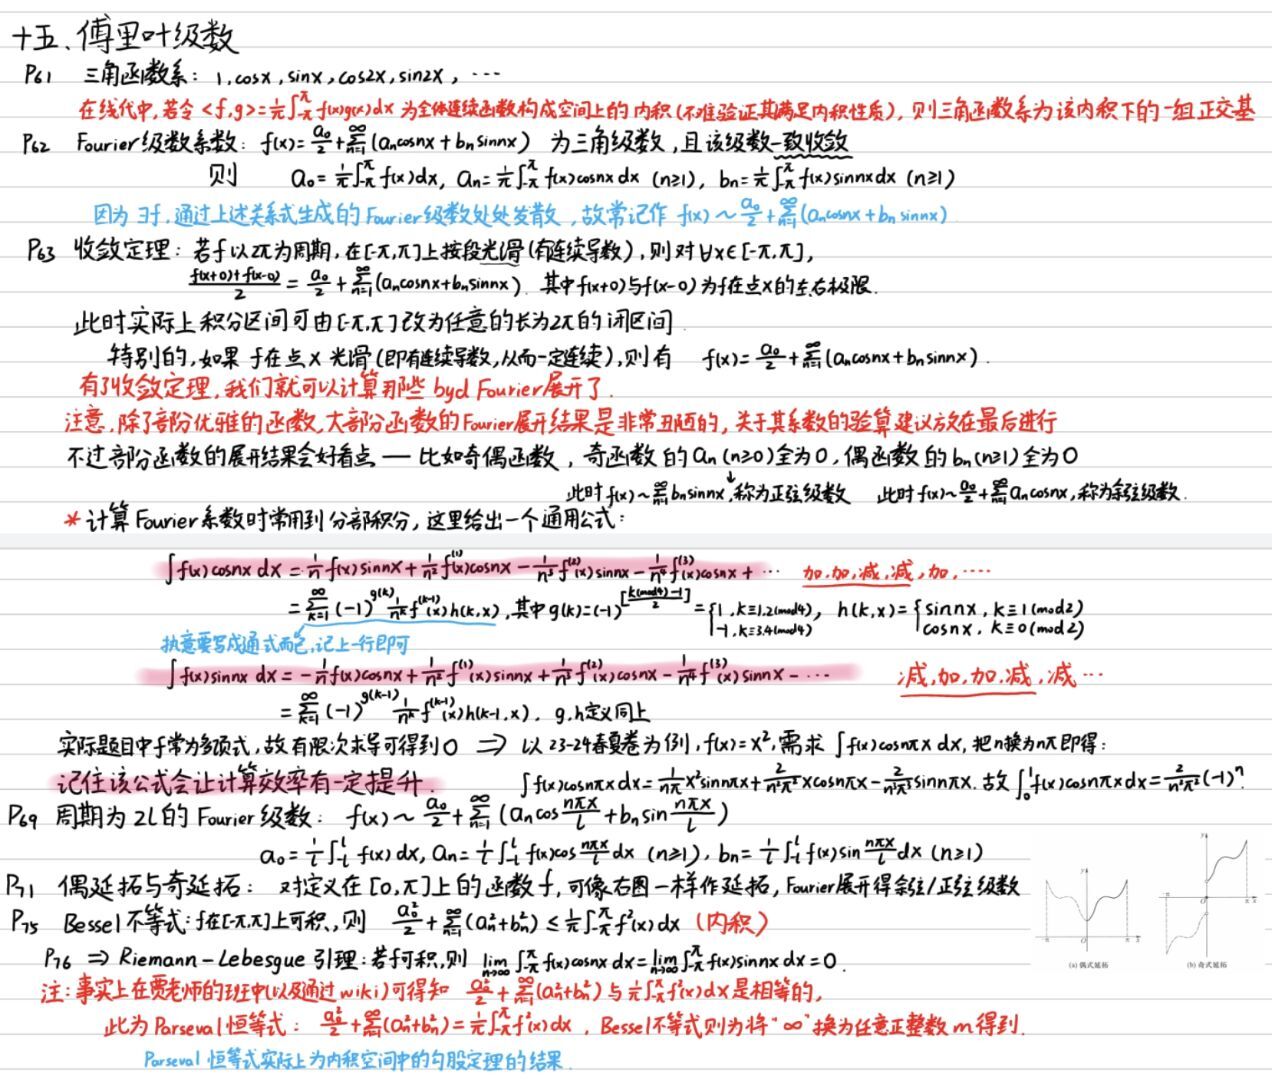 十五、傅里叶级数
P61 三角函数系：1, cosx, sinx, cos2x, sin2x, ⋯
在线代中，若令 <f,g> = 1/π ∫_{-π}^{π} f(x)g(x)dx 为全体连续函数构成空间上的内积(不难验证其满足内积性质)，则三角函数系为该内积下的一组正交基
P62 Fourier级数系数：f(x) = a₀/2 + ∑_{n=1}^{∞} (aₙcosnx + bₙsinnx) 为三角级数，且该级数一致收敛
则 a₀ = 1/π ∫_{-π}^{π} f(x)dx, aₙ = 1/π ∫_{-π}^{π} f(x)cosnx dx (n≥1), bₙ = 1/π ∫_{-π}^{π} f(x)sinnx dx (n≥1)
因为 ∃f，通过上述关系式生成的 Fourier级数处处发散，故常记作 f(x) ~ a₀/2 + ∑_{n=1}^{∞} (aₙcosnx + bₙsinnx)
P63 收敛定理：若f以2π为周期，在[-π,π]上按段光滑(有连续导数)，则对∀x∈[-π,π]，
(f(x+0)+f(x-0))/2 = a₀/2 + ∑_{n=1}^{∞} (aₙcosnx + bₙsinnx). 其中f(x+0)与f(x-0)为f在点x的左右极限.
此时实际上积分区间可由[-π,π]改为任意的长为2π的闭区间.
特别的，如果 f在点x光滑(即有连续导数，从而一定连续)，则有 f(x) = a₀/2 + ∑_{n=1}^{∞} (aₙcosnx + bₙsinnx).
有了收敛定理，我们就可以计算那些 byd Fourier展开了.
注意，除了部分优雅的函数，大部分函数的Fourier展开结果是非常丑陋的，关于其系数的验算建议放在最后进行
不过部分函数的展开结果会好看点 — 比如奇偶函数，奇函数的aₙ(n≥0)全为0，偶函数的bₙ(n≥1)全为0
此时f(x) ~ ∑_{n=1}^{∞} bₙsinnx，称为正弦级数 此时f(x) ~ a₀/2 + ∑_{n=1}^{∞} aₙcosnx，称为余弦级数.
* 计算Fourier系数时常用到分部积分，这里给出一个通用公式：
∫f(x)cosnx dx = 1/n f(x)sinnx + 1/n² f⁽¹⁾(x)cosnx - 1/n³ f⁽²⁾(x)sinnx - 1/n⁴ f⁽³⁾(x)cosnx + ⋯ 加,加,减,减,加,⋯⋯
= ∑_{k=1}^{∞} (-1)^{g(k)} 1/n^k f^{(k-1)}(x)h(k,x)，其中g(k) = (-1)^{[(k(mod4)-1)/2]} = {1, k≡1,2(mod4); -1, k≡3,4(mod4)}, h(k,x) = {sinnx, k≡1(mod2); cosnx, k≡0(mod2)}
执意要写成通式而已，记上一行即可
∫f(x)sinnx dx = -1/n f(x)cosnx + 1/n² f⁽¹⁾(x)sinnx + 1/n³ f⁽²⁾(x)cosnx - 1/n⁴ f⁽³⁾(x)sinnx - ⋯ 减,加,加,减,减⋯
= ∑_{k=1}^{∞} (-1)^{g(k-1)} 1/n^k f^{(k-1)}(x)h(k-1,x), g,h定义同上
实际题目中f常为多项式，故有限次求导可得到0 ⇒ 以23-24春夏卷为例，f(x)=x²，需求 ∫f(x)cosnπx dx，把n换为nπ即得：
记住该公式会让计算效率有一定提升. ∫f(x)cosnπx dx = 1/nπ x²sinnπx + 2/n²π² xcosnπx - 2/n³π³ sinnπx. 故 ∫₀¹ f(x)cosnπx dx = 2/n²π² (-1)ⁿ.
P69 周期为2l的Fourier级数：f(x) ~ a₀/2 + ∑_{n=1}^{∞} (aₙcos nπx/l + bₙsin nπx/l)
a₀ = 1/l ∫_{-l}^{l} f(x)dx, aₙ = 1/l ∫_{-l}^{l} f(x)cos nπx/l dx (n≥1), bₙ = 1/l ∫_{-l}^{l} f(x)sin nπx/l dx (n≥1)
P71 偶延拓与奇延拓：对定义在[0,π]上的函数f，可像右图一样作延拓，Fourier展开得余弦/正弦级数
(a) 偶式延拓 (b) 奇式延拓
P75 Bessel不等式：f在[-π,π]上可积，则 a₀²/2 + ∑_{n=1}^{∞} (aₙ²+bₙ²) ≤ 1/π ∫_{-π}^{π} f²(x)dx (内积)
P76 ⇒ Riemann-Lebesgue引理：若f可积，则 lim_{n→∞} ∫_{-π}^{π} f(x)cosnx dx = lim_{n→∞} ∫_{-π}^{π} f(x)sinnx dx = 0.
注：事实上在贾老师的班中(以及通过wiki)可得知 a₀²/2 + ∑_{n=1}^{∞} (aₙ²+bₙ²) 与 1/π ∫_{-π}^{π} f²(x)dx 是相等的，
此为Parseval恒等式：a₀²/2 + ∑_{n=1}^{∞} (aₙ²+bₙ²) = 1/π ∫_{-π}^{π} f²(x)dx, Bessel不等式则为将“∞”换为任意正整数m得到.
Parseval恒等式实际上为内积空间中的勾股定理的结果.